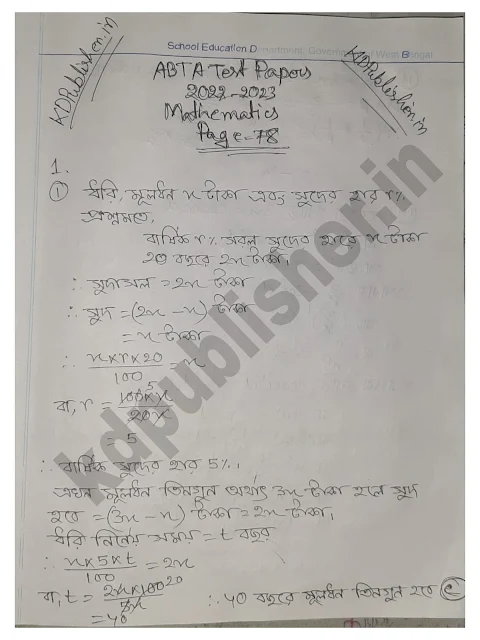 KDPublisher.in
School Education Department, Government of West Bengal
KDPublisher.in
ABTA Test Papers
2022-2023
Mathematics
Page-78
1.
① ধরি, মূলধন x টাকা এবং সুদের হার r%
প্রশ্নমতে,
বার্ষিক r% সরল সুদের হারে x টাকা
20 বছরে 2x টাকা।
∴ সুদাসল = 2x টাকা
∴ সুদ = (2x - x) টাকা
= x টাকা
∴ x×r×20/100 = x
বা, r = 100×x/20x 5
= 5
∴ বার্ষিক সুদের হার 5%।
এখন মূলধন তিনগুন অর্থাৎ 3x টাকা হলে সুদ
হবে = (3x - x) টাকা = 2x টাকা।
ধরি নির্নেয় সময় = t বছর
∴ x×5×t/100 = 2x
বা, t = 2x×100/5x 20
= 40
∴ 40 বছরে মূলধন তিনগুন হবে ⓒ
kdpublisher.in